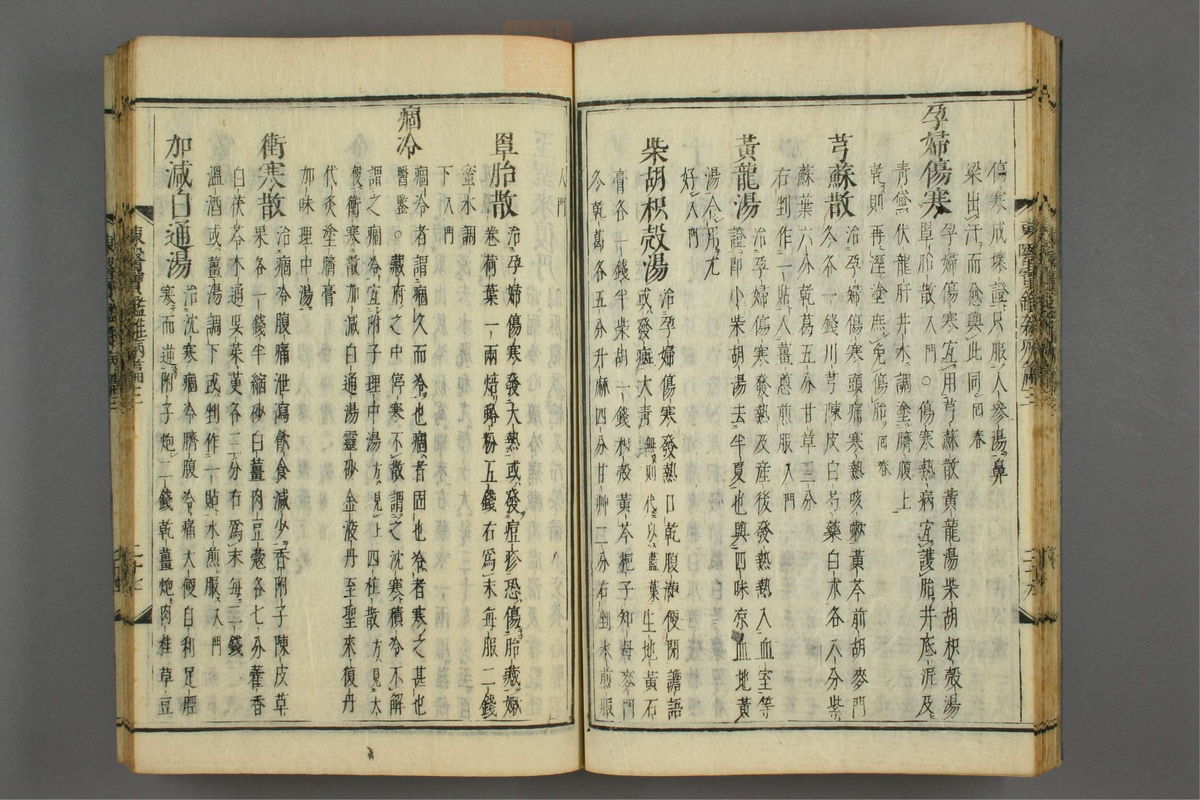 傷寒成壞證只服人參湯鼻
梁出汗而愈與此同回春
孕婦傷寒
孕婦傷寒宜用芎蘇散黃龍湯柴胡枳殼湯
罩胎散入門○傷寒熱病宜護胎井底泥及
靑黛伏龍肝井水調塗臍腹上
乾則再塗庶免傷胎回春
芎蘇散
治孕婦傷寒頭痛寒熱咳嗽黃芩前胡麥門
冬各一錢川芎陳皮白芍藥白朮各八分紫
蘇葉六分乾葛五分甘草三分
右剉作一貼入薑葱煎服入門
黃龍湯
治孕婦傷寒發熱及産後發熱熱入血室等
證即小柴胡湯去半夏也與四味凉血地黃
湯合服尤
好入門
柴胡枳殼湯
治孕婦傷寒發熱口乾腹滿便閉譫語
或發癍大靑無則代以藍葉生地黃石
膏各一錢半柴胡一錢枳殼黃芩梔子知母麥門
冬乾葛各五分升麻四分甘艸三分右剉水煎服
入門
罩胎散
治孕婦傷寒發大熱或發痘疹恐傷胎藏嫩
卷荷葉一兩焙蚌粉五錢右爲末每服二錢
蜜水調
下入門
痼冷
痼冷者謂痼久而冷也痼者固也冷者寒之甚也
醫鑑○藏府之中停寒不散謂之沈寒積冷不解
謂之痼冷宜附子理中湯方見上四柱散方見大
便衛寒散加減白通湯靈砂金液丹至聖來復丹
代灸塗臍膏
加味理中湯
衛寒散
治痼冷腹痛泄瀉飮食減少香附子陳皮草
果各一錢半縮砂白薑肉豆蔲各七分藿香
白茯苓木通吳茱萸各三分右爲末每二錢
溫酒或薑湯調下或剉作一貼水煎服入門
加減白通湯
治沈寒痼冷臍腹冷痛大便自利足脛
寒而逆附子炮二錢乾薑炮肉桂草豆